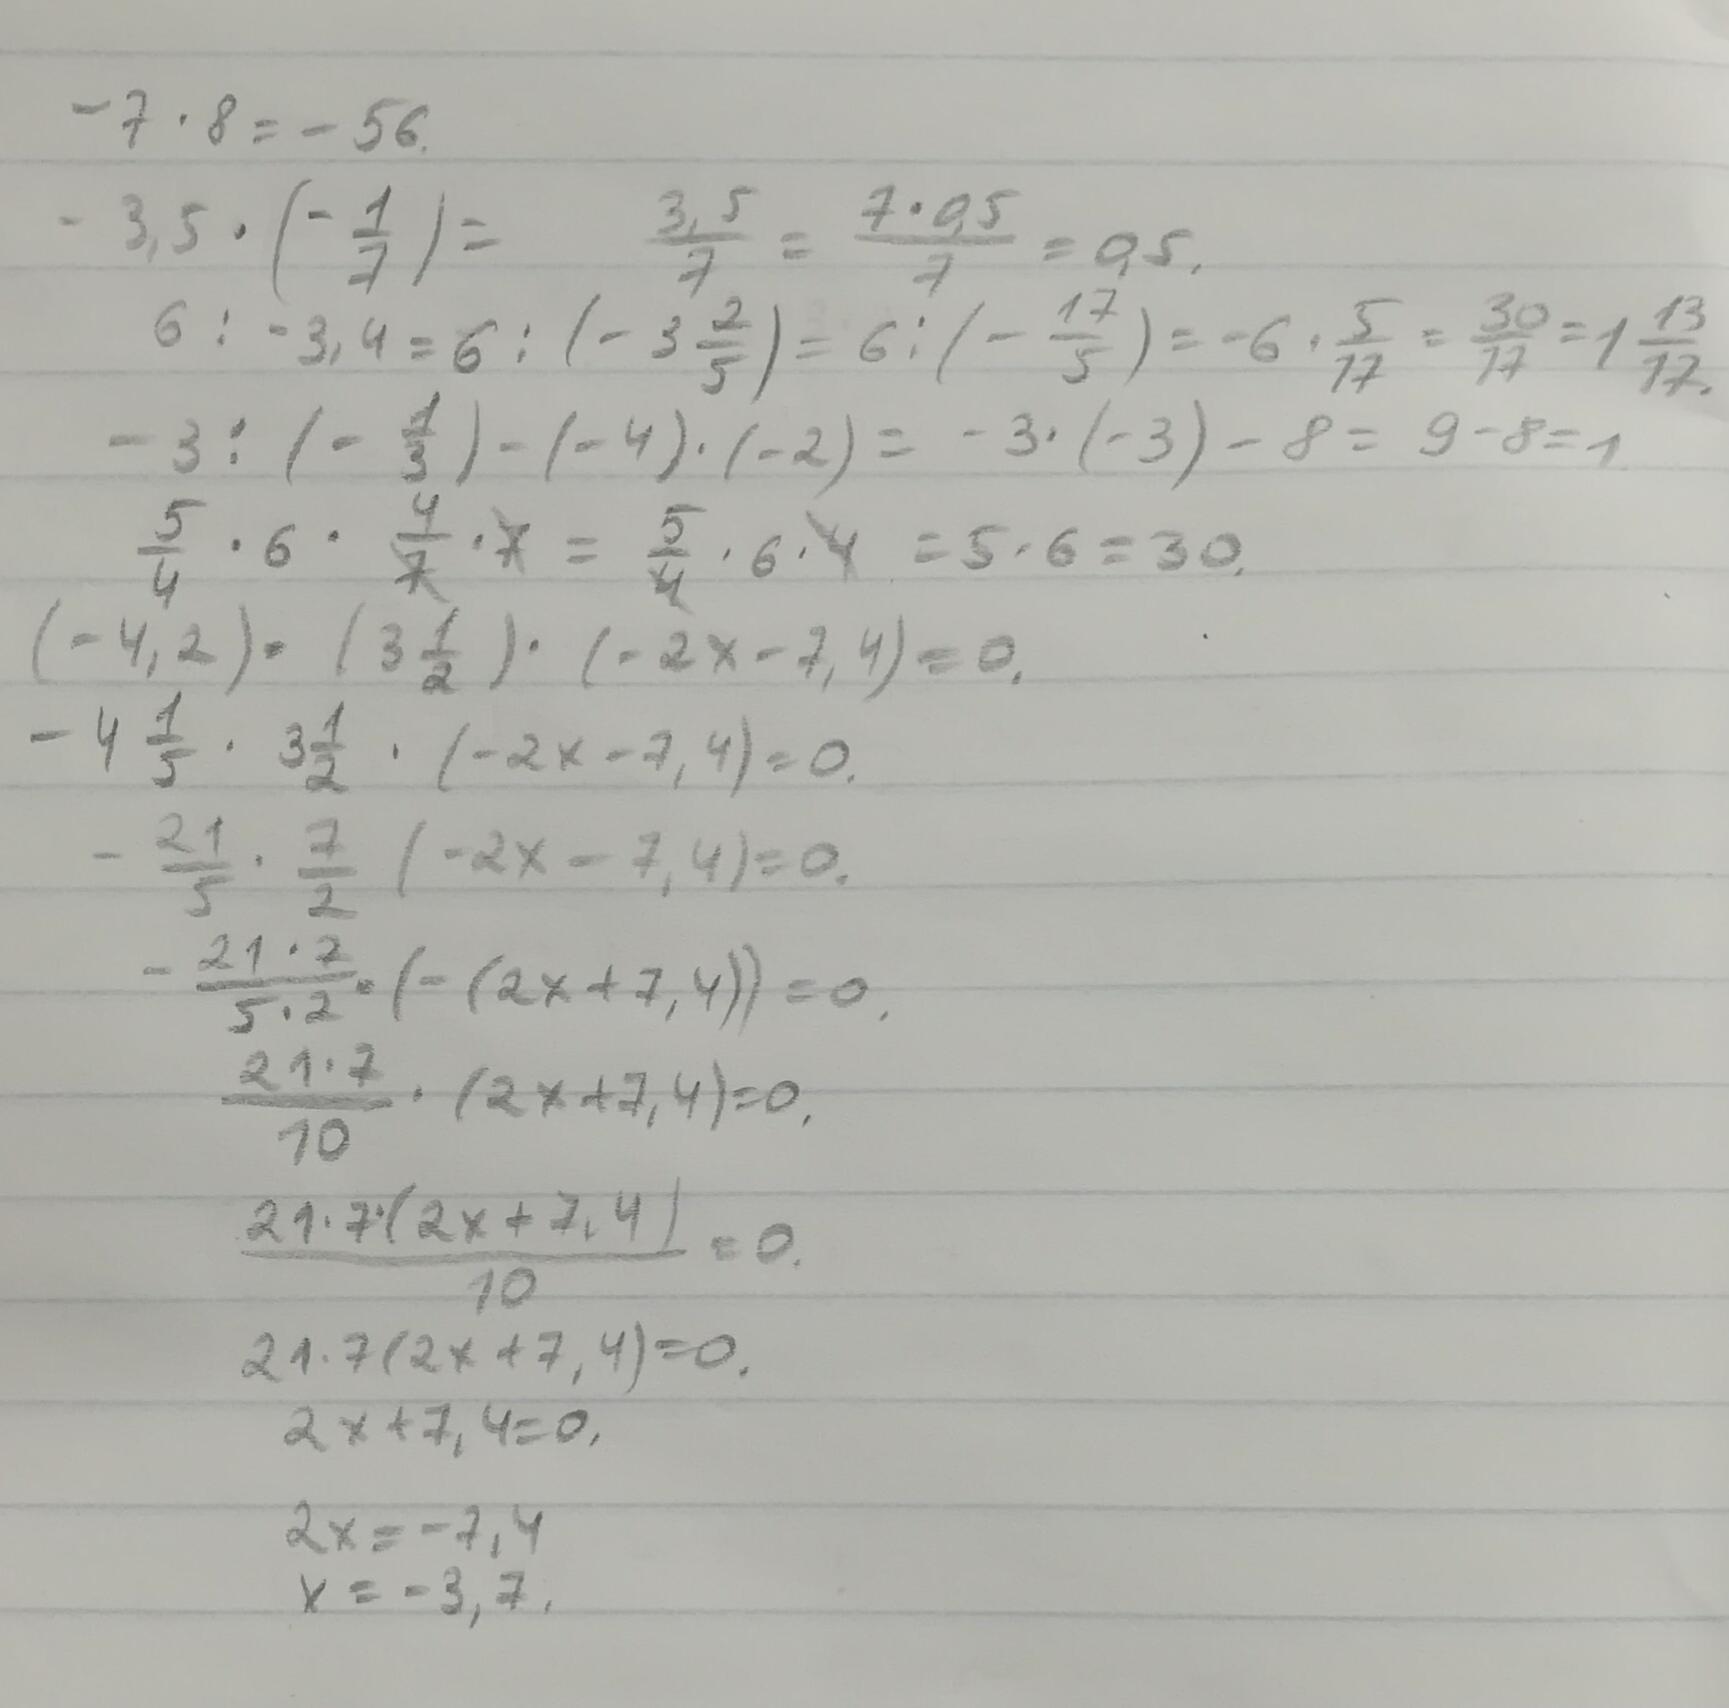 -7 · 8 = -56.
-3,5 · (-1/7) = 3,5/7 = 7·0,5/7 = 0,5.
6 : -3,4 = 6 : (-3 2/5) = 6 : (-17/5) = -6 · 5/17 = 30/17 = 1 13/17.
-3 : (-1/3) - (-4) · (-2) = -3 · (-3) - 8 = 9 - 8 = 1
5/4 · 6 · 4/7 · 7 = 5/4 · 6 · 4 = 5 · 6 = 30.
(-4,2) · (3 1/2) · (-2x - 7,4) = 0.
-4 1/5 · 3 1/2 · (-2x - 7,4) = 0.
-21/5 · 7/2 (-2x - 7,4) = 0.
-21·7/5·2 · (-(2x + 7,4)) = 0.
21·7/10 · (2x + 7,4) = 0.
21·7·(2x + 7,4)/10 = 0.
21·7(2x + 7,4) = 0.
2x + 7,4 = 0.
2x = -7,4
x = -3,7.